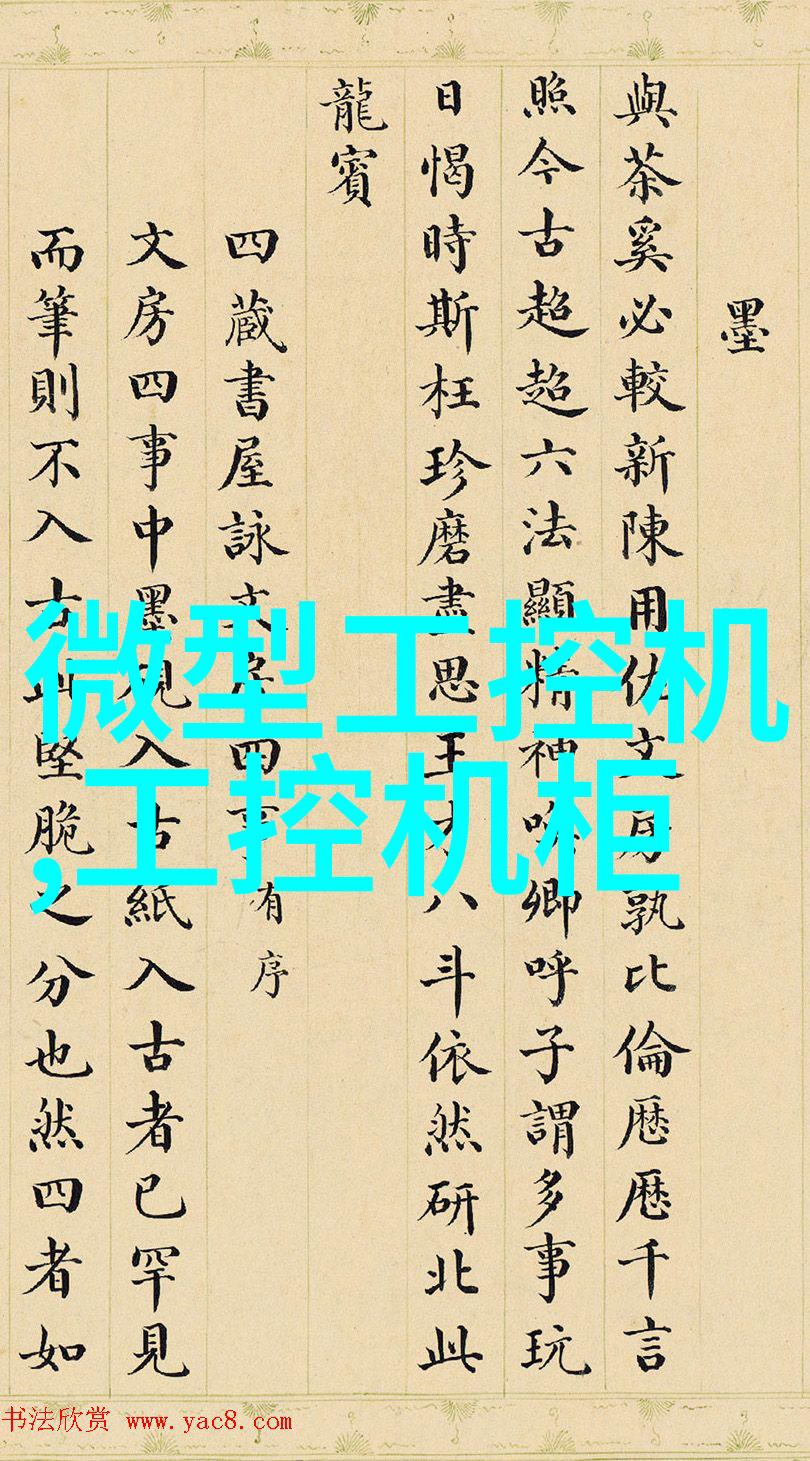 墨
與茶奚必較新陳用佐文房孰比倫歷歷千言
照今古超超六法顯精神吟卿呼子謂多事玩
日愒時斯枉珍磨盡思王才八斗依然研北此
龍賓
四藏書屋詠文房四事有序
文房四事中墨硯入古紙入古者已罕見
而筆則不入古此堅脆之分也然四者如
微型工控机
,工控机柜
书法欣赏 www.yac8.com